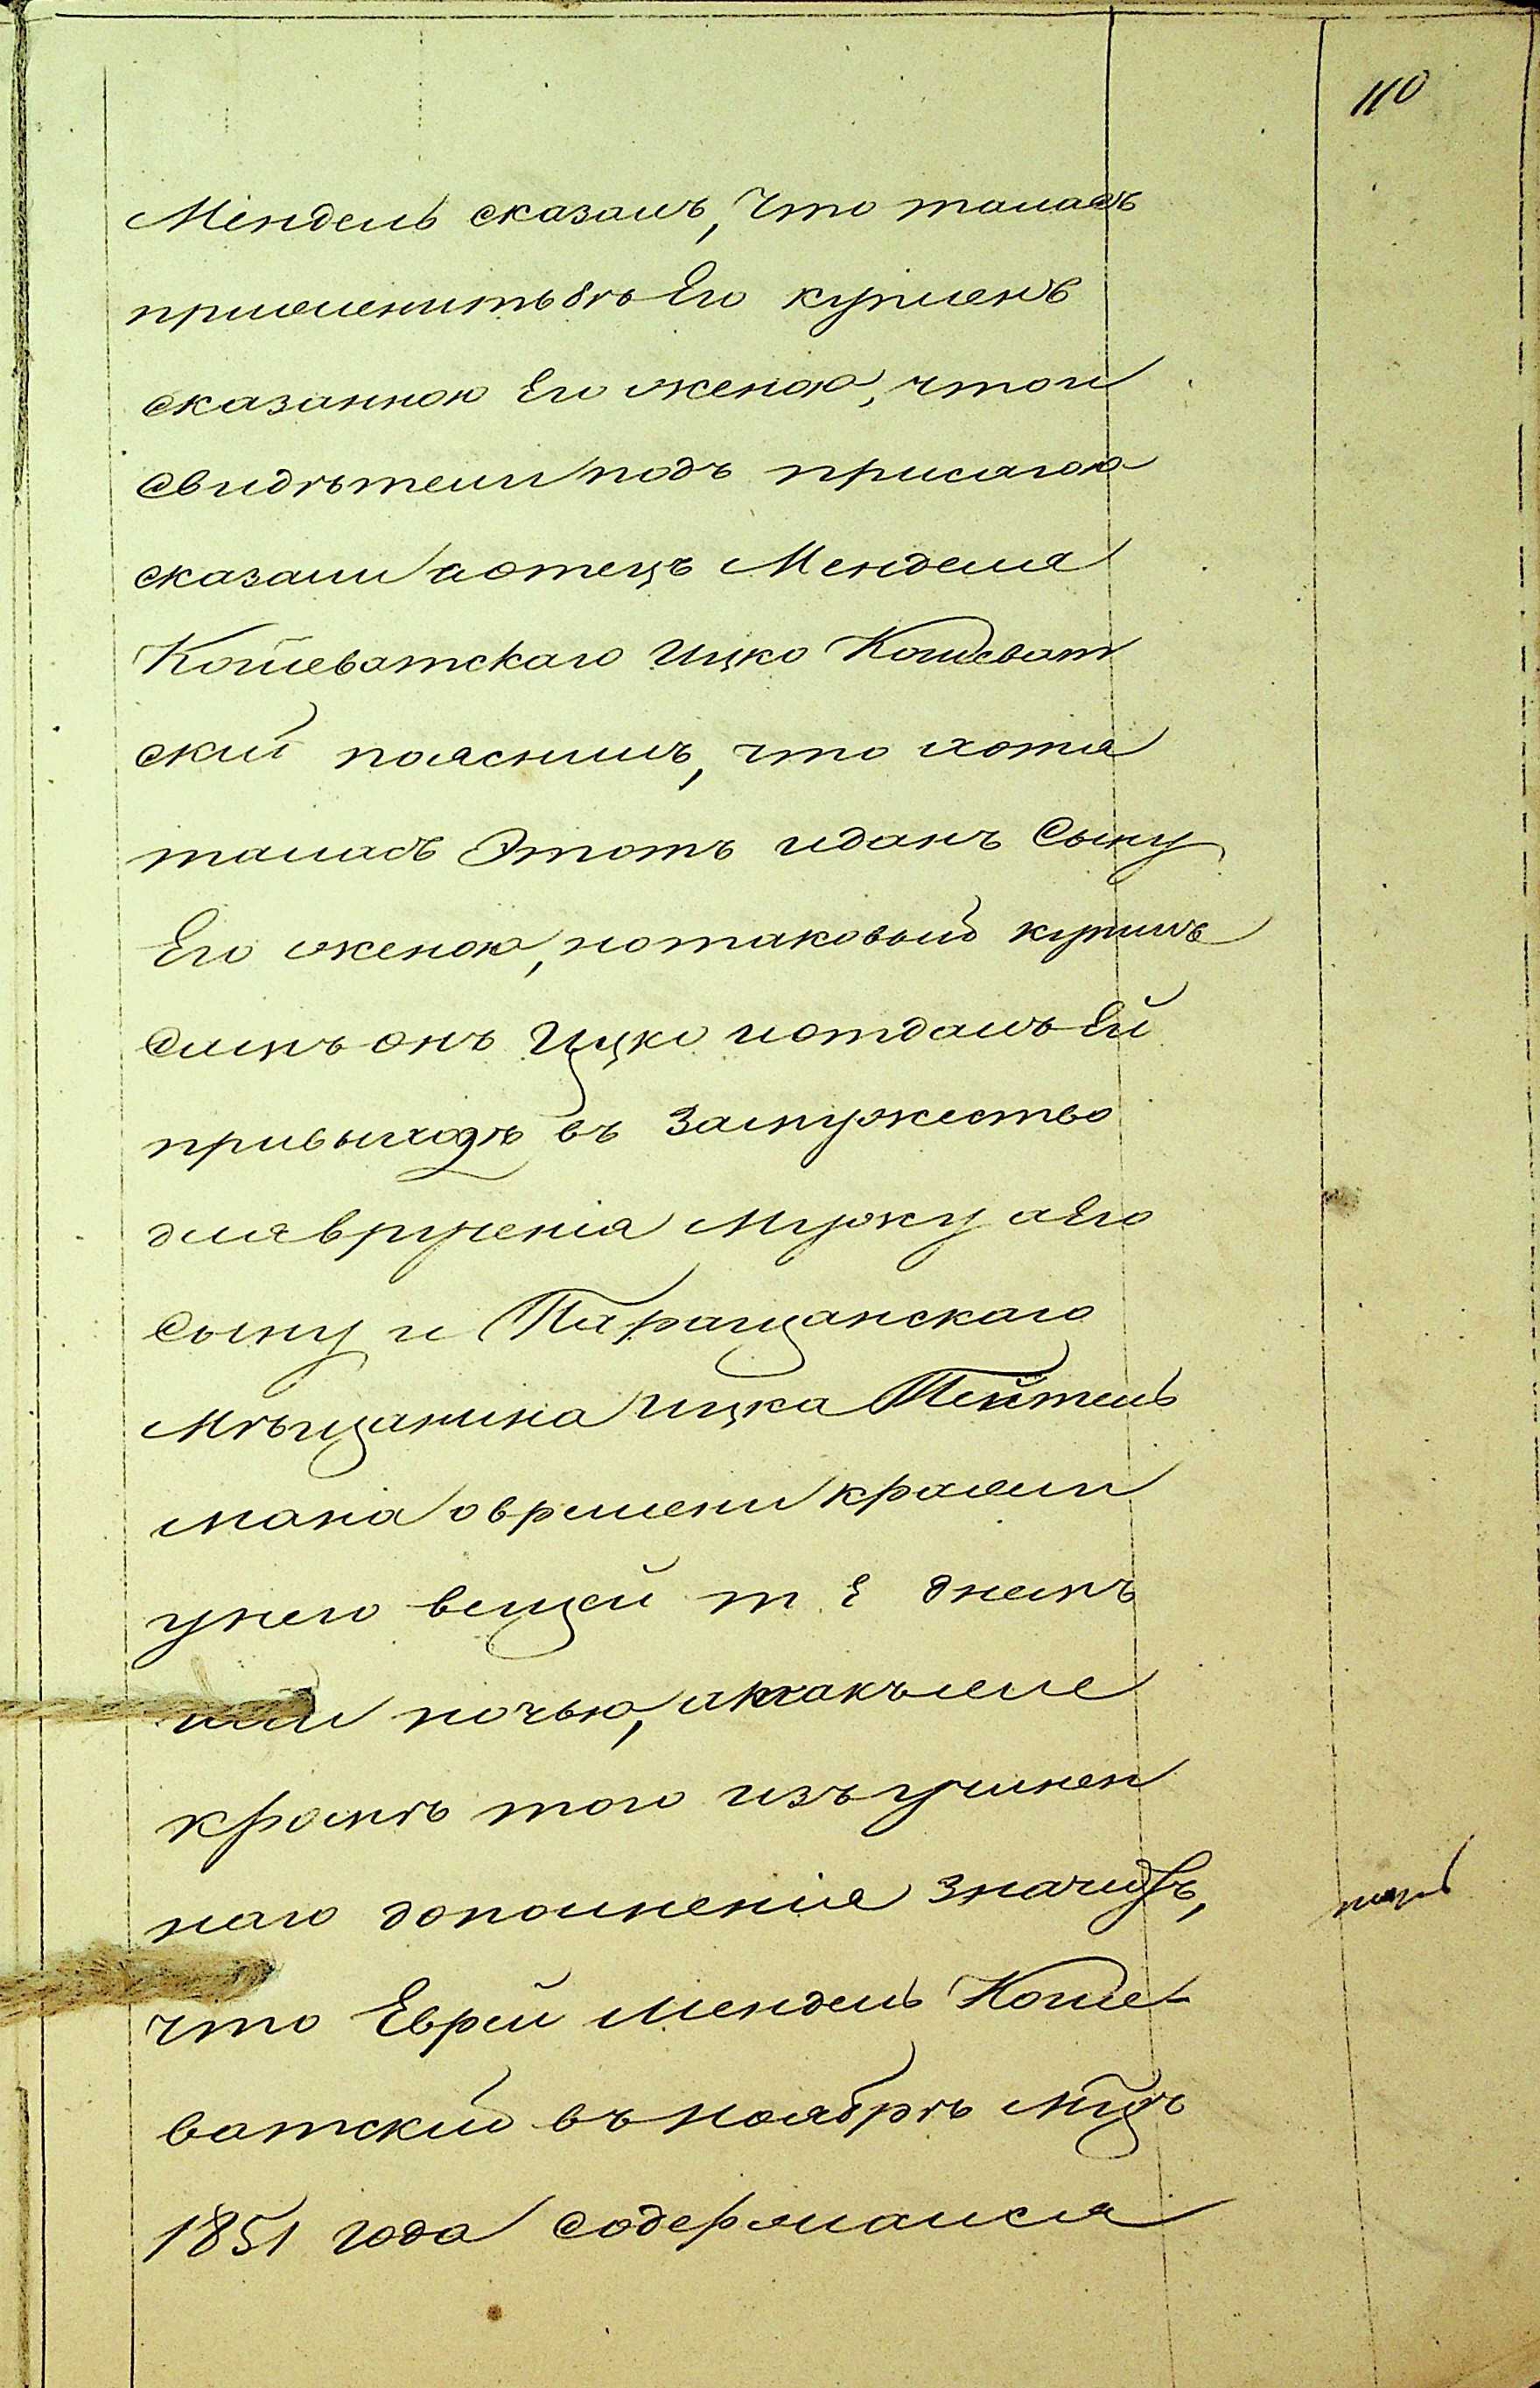 110
Мендель сказалъ, что таласъ
приженитьбѣ Его купленъ
сказанною Его женою, что и
свидѣтели подъ присягою
сказали а отецъ Менделя
Кошеватскаго Ицко Кошеват
скій пояснилъ, что хотя
таласъ Этотъ иданъ Сыну
Его женою, но таковый купилъ
самъ онъ Ицко и отдалъ Ей
привыходѣ въ Замужество
для врученія мужу а Его
Сыну и Таращанскаго
мѣщанина Ицка Тейтель
мана о времени кражи
у него вещей т Е днемъ
или ночью, а какъ еще
кромѣ того изъ учинен
наго дополненія значитъ,
что Еврей Мендель Коше-
ватскій въ Ноябрѣ мцѣ
1851 года содержался